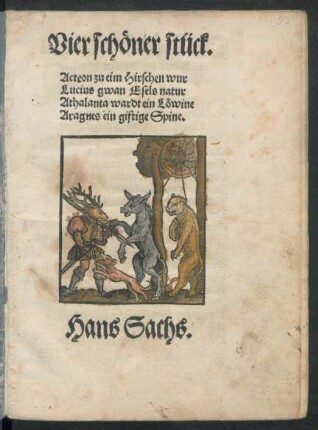 Vier schöner stück.
Acteon zu eim Hirschen wur
Lucius gwan Esels natur
Athalanta wardt ein Löwine
Aragnes ein gifftige Spine.
Hans Sachs.